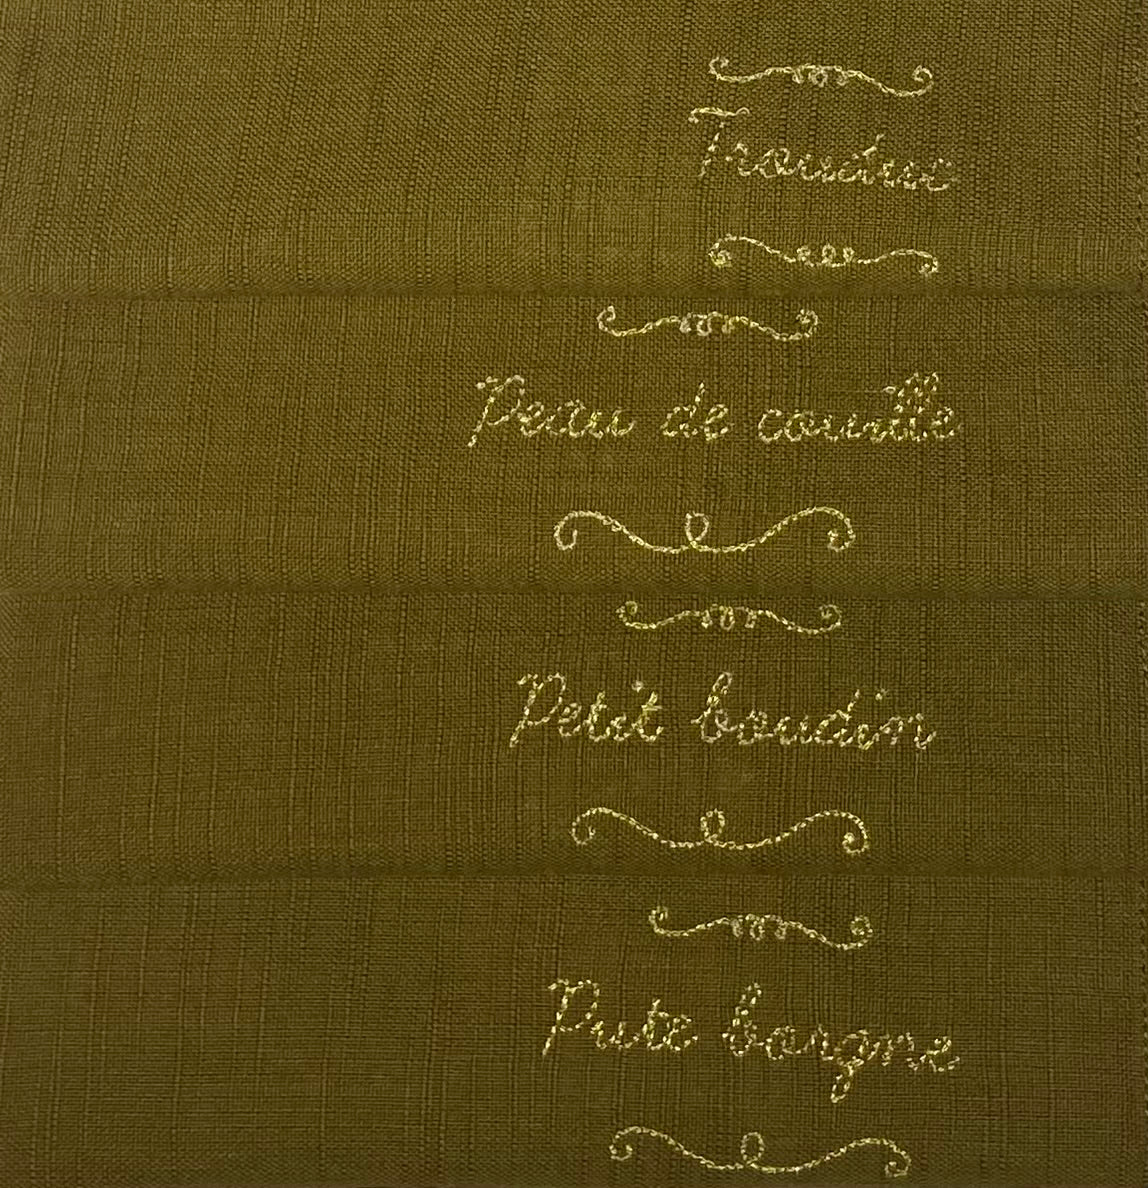 Trouduc
Peau de couille
Petit boudin
Pute borgne